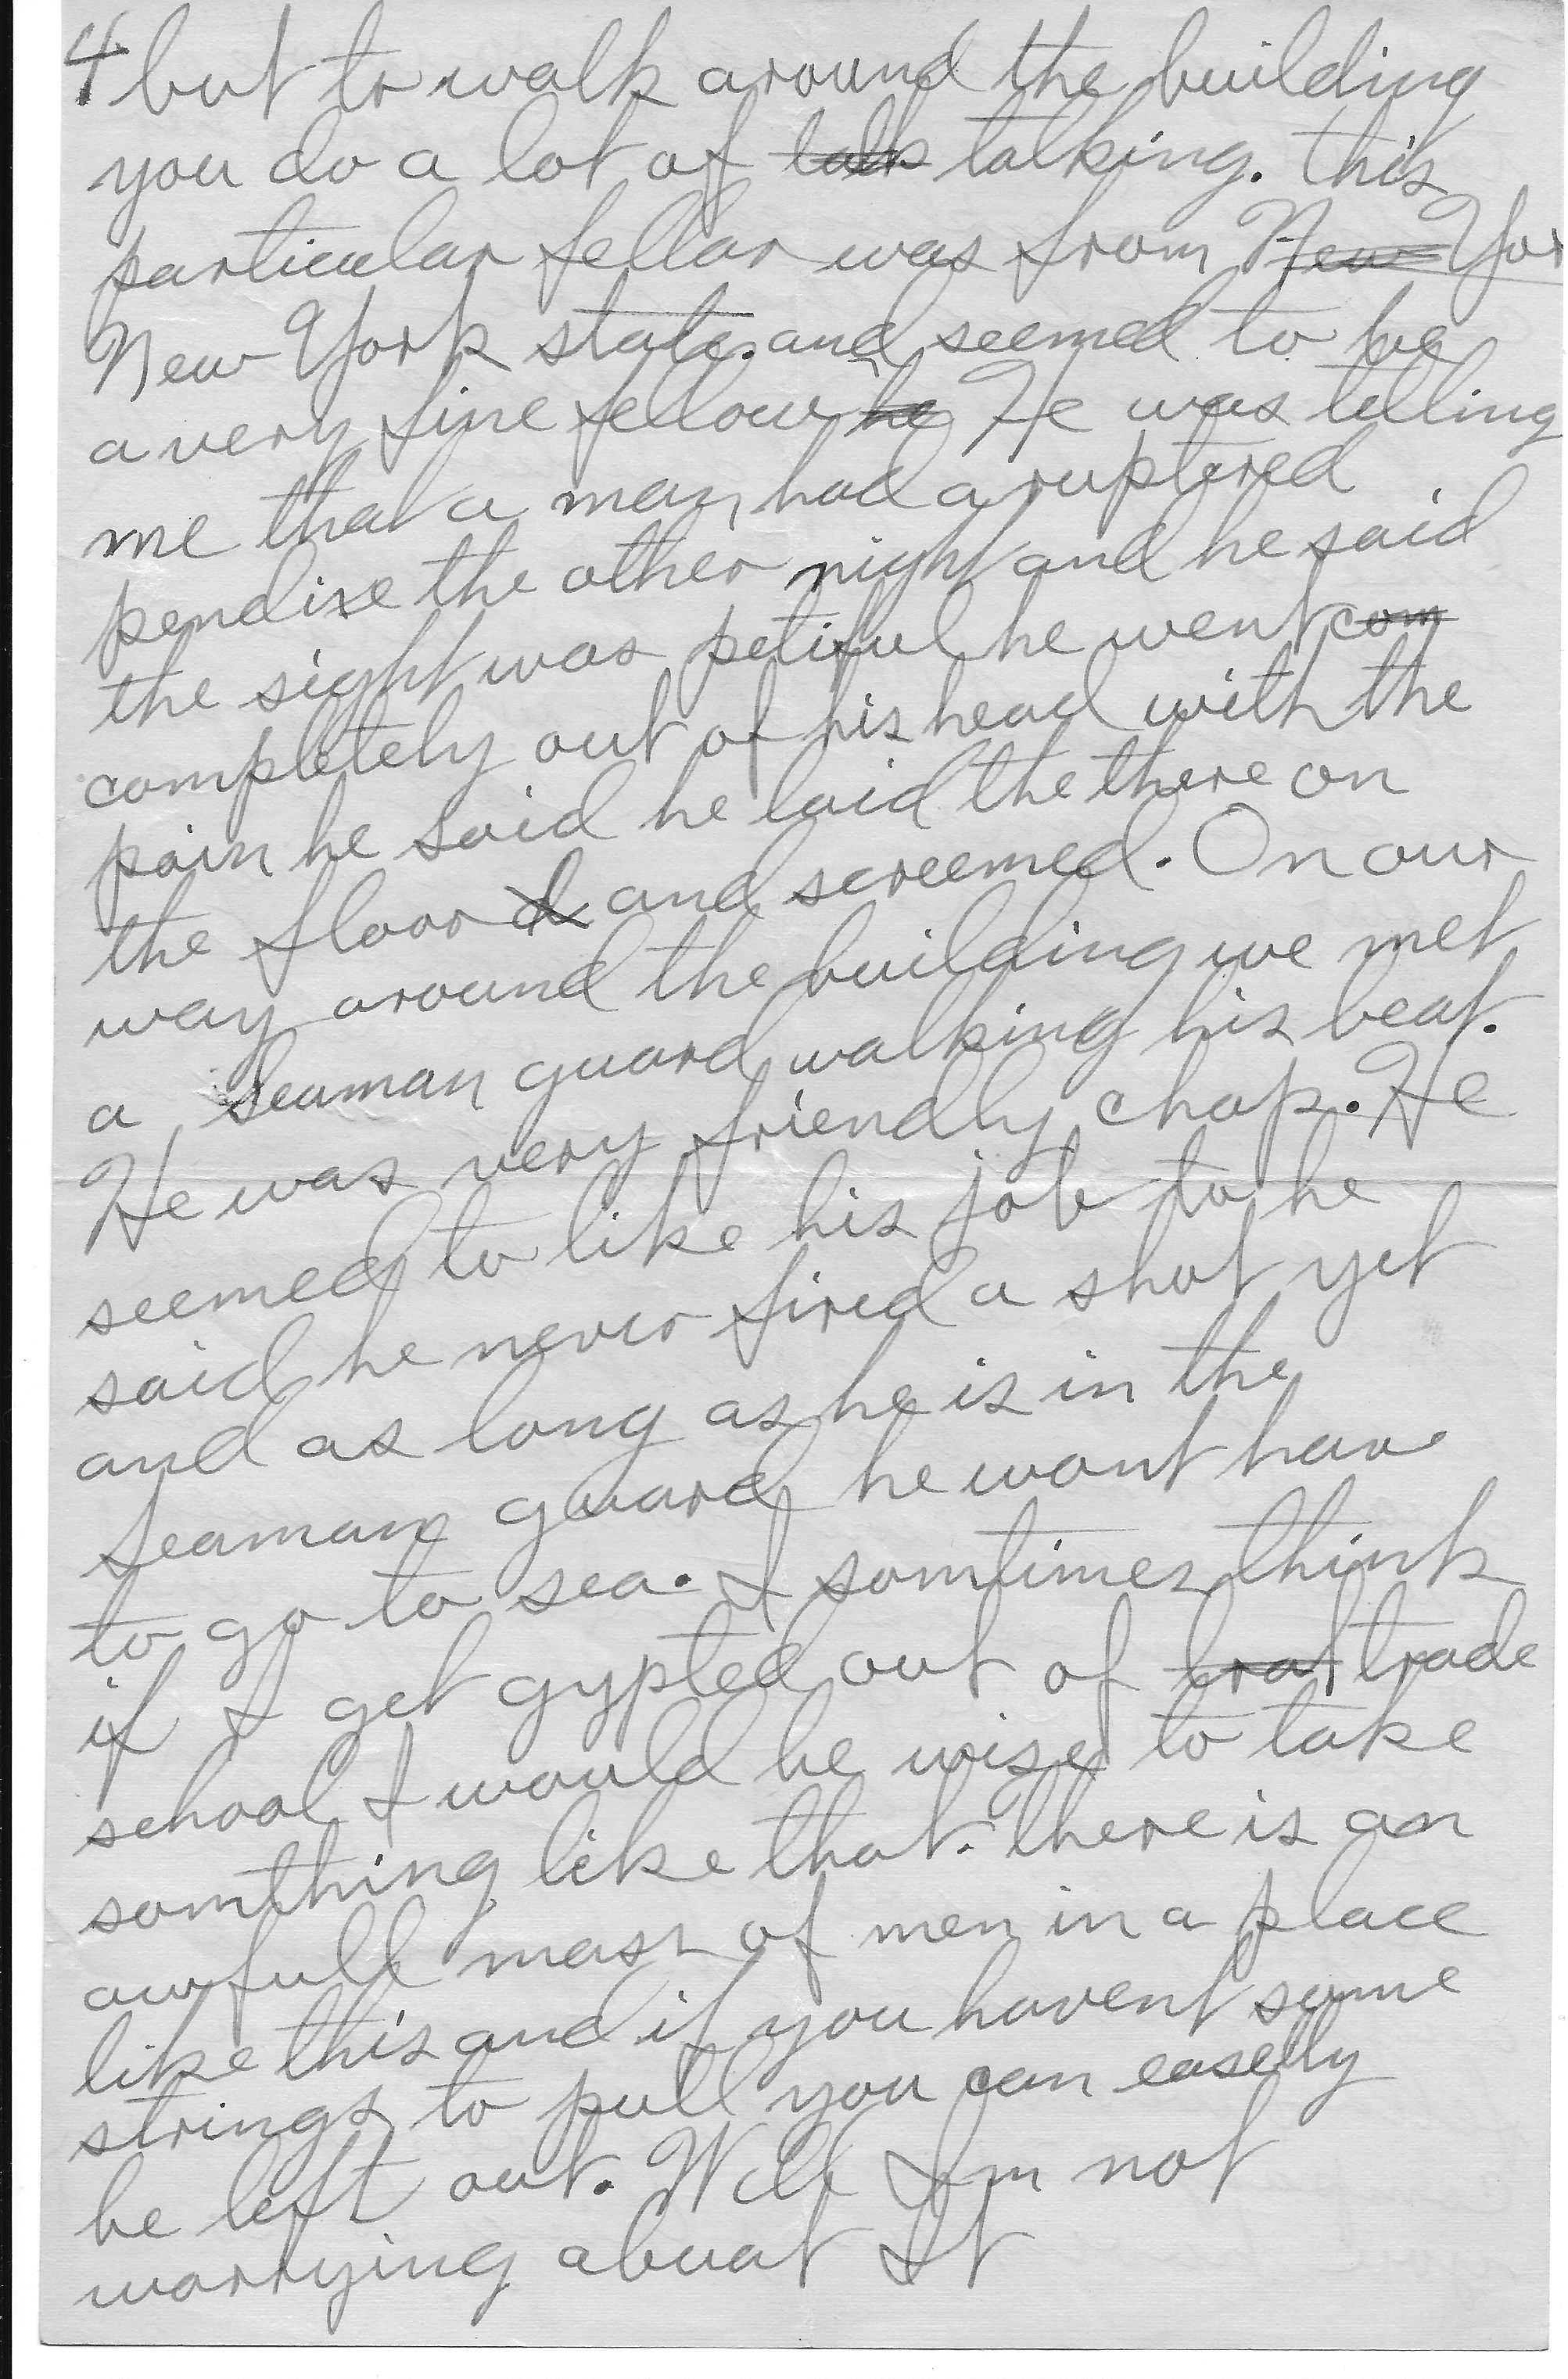 4 but to walk around the building
you do a lot of talk talking. this
particular fellar was from New Yor
New York state. and seemed to be
a very fine fellow he He was telling
me that a man had a ruptered
pendixe the other night and he said
the sight was petiful he went com
completely out of his head with the
pain he said he laid the there on
the floor and screemed. On our
way around the building we met
a Seaman guard walking his beat.
He was very friendly chap. He
seemed to like his job to he
said he never fired a shot yet
and as long as he is in the
Seamans guard he wont have
to go to sea. I somtimes think
if I get gypted out of trat trade
school I would be wise to take
somthing like that. there is an
awfull mass of men in a place
like this and if you havent some
strings to pull you can easelly
be left out. Well Im not
worrying abuat It